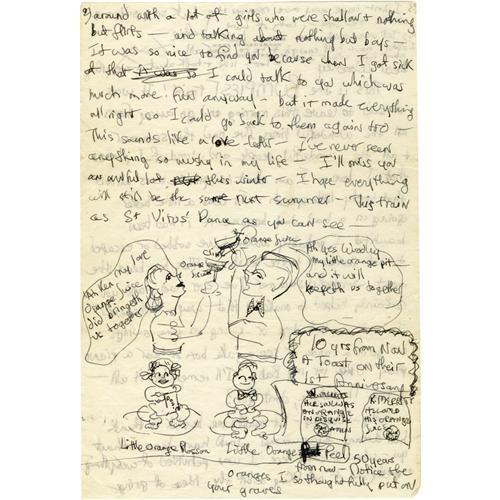 2) around with a lot of girls who were shallow + nothing
but flirts — and talking about nothing but boys —
It was so nice to find you because when I got sick
of that I could talk to you which was
much more fun anyway — but it made everything
all right, or I could go back to them again too —
This sounds like a love letter — I've never seen
anything so mushy in my life — I'll miss you
an awful lot this winter — I hope everything
will still be the same next summer — This train
as St Vitus' Dance as you can see —
Orange Juice
Clink
Orange Juice
Ah Ken my love
Orange Juice
did bringeth
us together
Ah yes
my little orange pit
and it will
keepeth us together
10 yrs from Now
A Toast on their
1st Anniversary
HERE
AN ORANGE
IN DISGUISE
K. MERRITT
HIS ORANGE
JUICE
Little Orange Blossom
Little Orange Peel
50 years
from now — Notice the
oranges I so thoughtfully put on
your graves